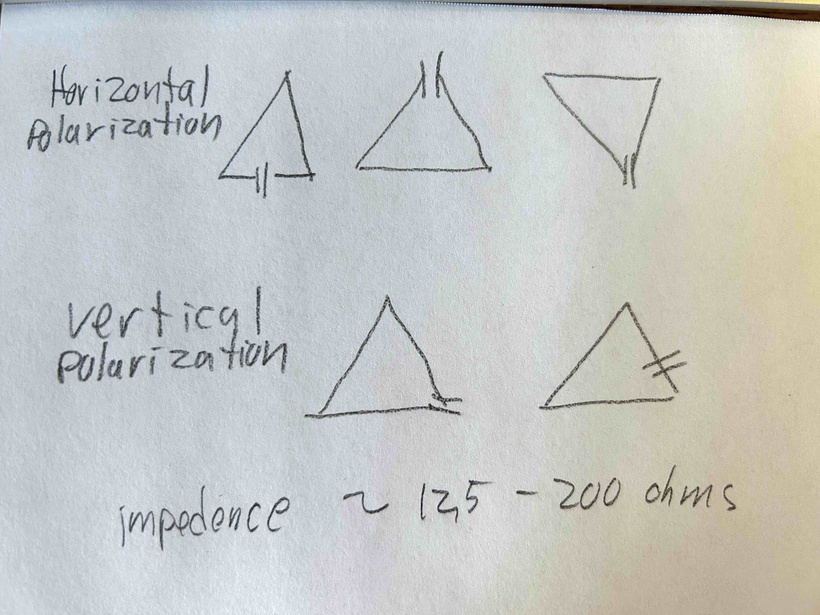 Horizontal
Polarization
vertical
polarization
impedence ~ 125 - 200 ohms